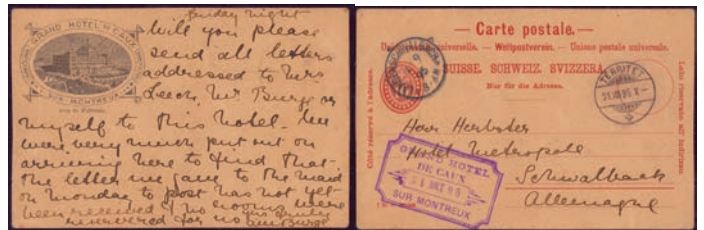 Sunday night
GRAND HOTEL DE CAUX
SUR MONTREUX
Will you please
send all letters
addressed to Mrs
Leech, Mr Burge or
myself to this hotel. We
were very much put out on
arriving here to find that
the letter we gave to the maid
on Monday to post has not yet
been received & no rooms were
reserved for us
Burge
— Carte postale. —
universelle. — Weltpostverein. — Unione postale universale.
SUISSE. SCHWEIZ. SVIZZERA.
Nur für die Adresse.
Côté réservé à l'adresse.
Lato riservato all' indirizzo.
TERRITET
Herr Herbster
Hotel Metropole
Schwalbach
Allemagne
GRAND HOTEL
DE CAUX
SUR MONTREUX